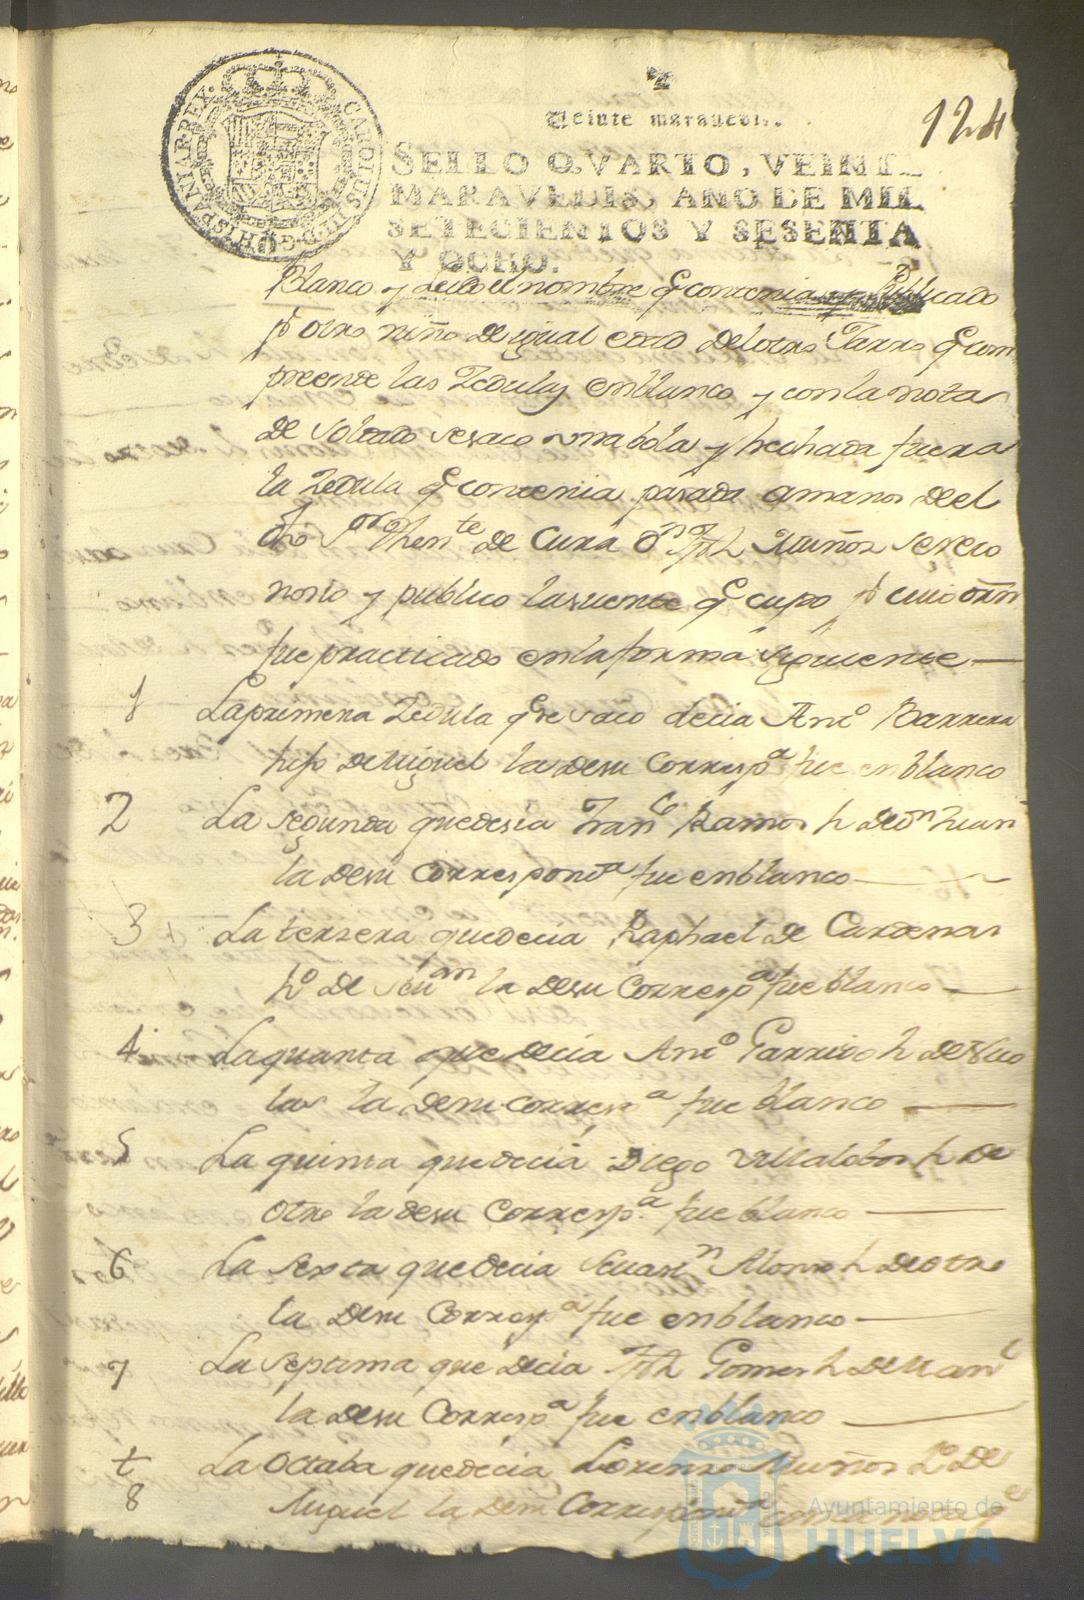 124
Veinte maravedis.
SELLO QVARTO, VEINTE
MARAVEDIS, AÑO DE MIL
SETECIENTOS Y SESENTA
Y OCHO.
CAROLUS III D G HISPANIAR REX
Blanco y leido el nombre q contenia y publicado
pr otro niño de igual edad del otro Jarro q com
preende las Zedulas en blanco y con la nota
de soldado se saco una bola y hechada fuera
la Zedula q contenia pasada a manos de el
dho Sor Thente de Cura Dn Jph Muñoz se reco
nosio y publico la suerte q cupo pr cuio orn
fue practicado en la forma siguiente
1 La primera Zedula q se saco decia Anto Barrera
hijo de Miguel la de su correspa fue en blanco
2 La segunda que desia Franco Ramos h de Dn Juan
la de su correspondа fue en blanco
3 La tersera que decia Raphael de Cardenas
ho de Seuan la de su correspa fue blanco
4 La quarta que decia Anto Garrido h de Nico
las la de su correspa fue blanco
5 La quinta que decia Diego Villalobos h de
otro la de su correspa fue blanco
6 La sexta que decia Seuasn Alonso h de otro
la de su correspa fue en blanco
7 La septima que decia Jph Gomes h de Manl
la de su correspa fue en blanco
t La octaba que decia Lorenzo Muños ho de
8 Miguel la de su correspondа con la nota de
Ayuntamiento de
HUELVA